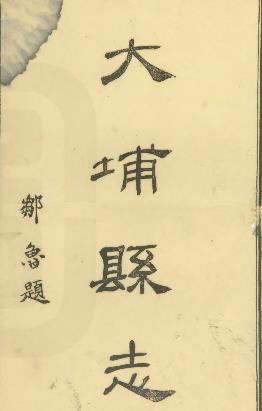 大埔縣志
鄒魯題